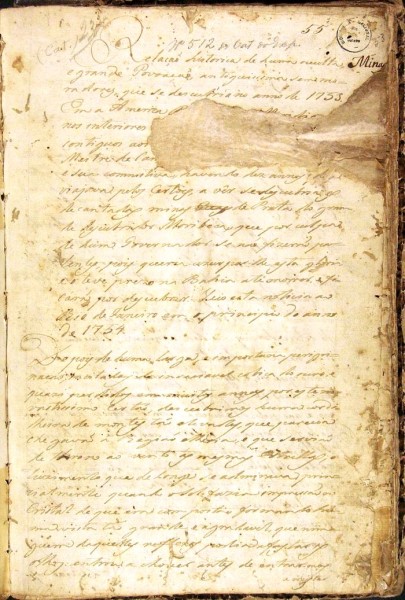 55
Nº 512
Minas
Relação historica de huma occulta,
e grande Povoação, antiquissima sem mo-
radores, que se descubriu no anno de 1753.
Em a America
nos interiores
contiguos aos
Mestre de Can
e sua comitiva, havendo dez annos, q
viajava pelos Certões, a vêr se descubria as
decantadas minas de Prata do gran-
de descubridor Moribeca, que por culpa
de hum Governador se não fizerão pa-
tentes, pois queria uzurparlhe esta gloria,
e o teve prezo na Bahia até morrer, e fi-
carão por descubrir. Veio esta noticia ao
Rio de Janeiro em o principio do anno
de 1754.
Depois de huma larga, e importuna peregri-
nação, incitados da insaciavel cobiça de ouro, e
quasi perdidos em muitos annos por este
vastissimo Certão, descubrimos huma cordi-
lheira de montes tão elevados, que parecia
chegavão a Região etheria, e que servião
de throno ao vento, as mesmas Estrellas; o
luzimento que de longe se admirava, princi-
palmente quando o Sol fazia impressão ao
Cristal de que era composta formando hua
vista tão grande, e agradavel, que nin-
guem daquelles reflexos podia afastar os
olhos: entrou a chover antes de entrarmos
a regis